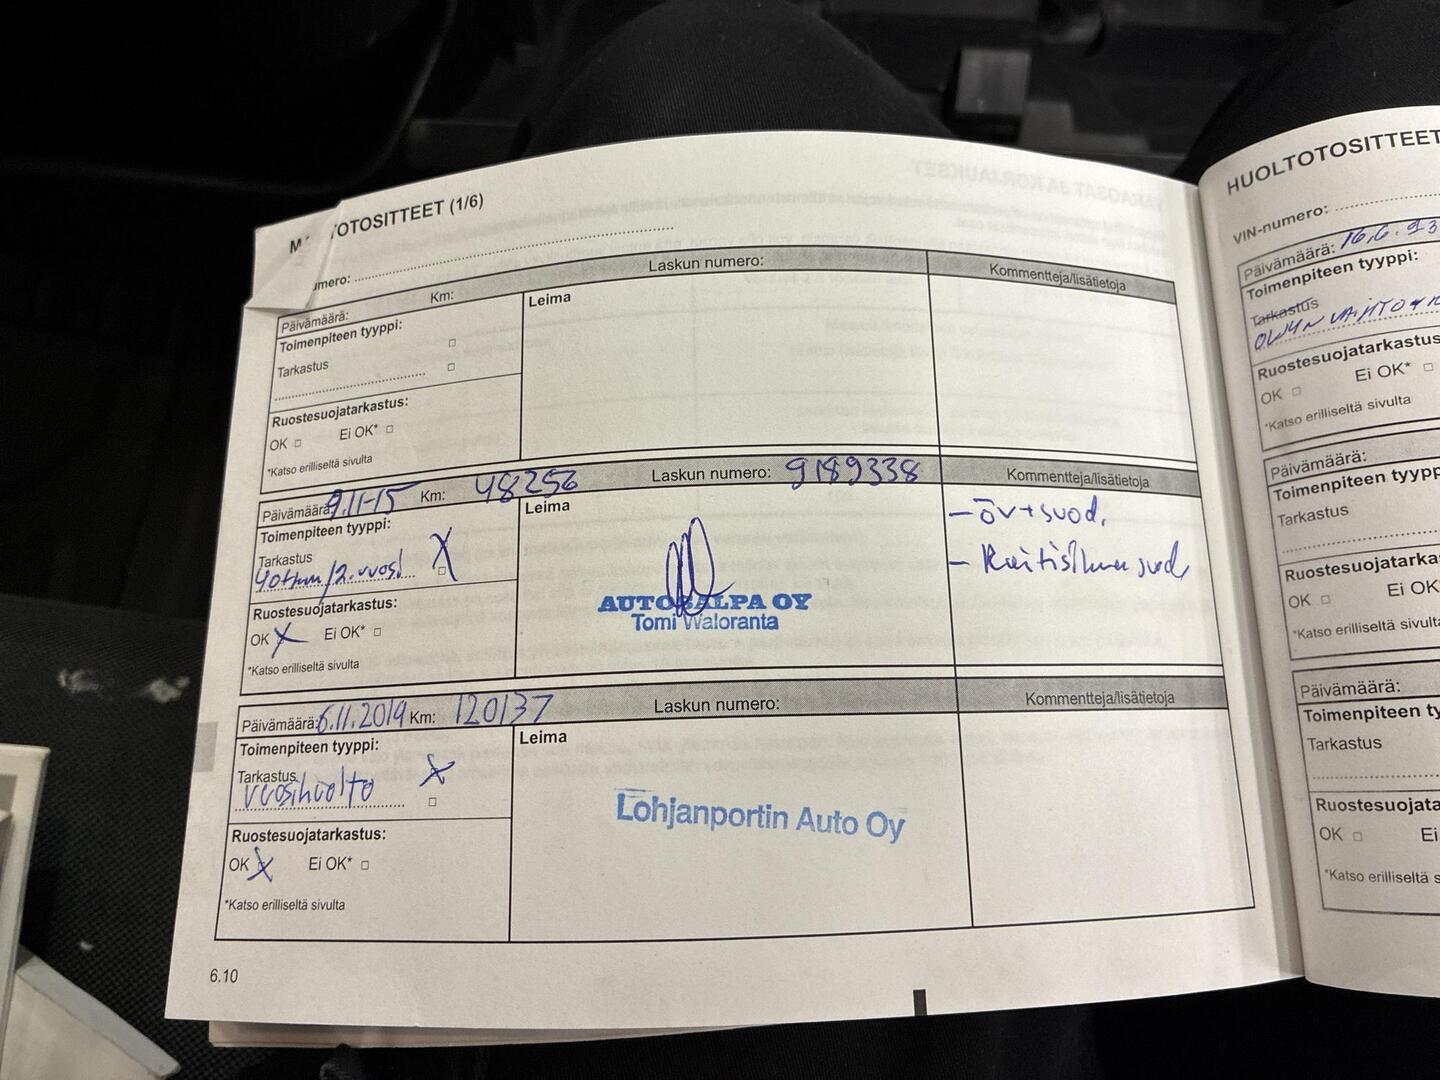 OTOSITTEET (1/6)
umero:
Laskun numero:
Kommentteja/lisätietoja
Päivämäärä: Km:
Leima
Toimenpiteen tyyppi:
Tarkastus
Ruostesuojatarkastus:
OK Ei OK*
*Katso erilliseltä sivulta
Päivämäärä: 9.11-15 Km: 48256 Laskun numero: 9189338 Kommentteja/lisätietoja
Toimenpiteen tyyppi:
Leima
- öv+suod.
Tarkastus X
40tkm/2.vuosi
- Raitisilmasuod
Ruostesuojatarkastus:
AUTOSALPA OY
Tomi Waloranta
OK X Ei OK*
*Katso erilliseltä sivulta
Päivämäärä: 6.11.2019 Km: 120137 Laskun numero: Kommentteja/lisätietoja
Toimenpiteen tyyppi:
Leima
Tarkastus X
vuosihuolto
Lohjanportin Auto Oy
Ruostesuojatarkastus:
OK X Ei OK*
*Katso erilliseltä sivulta
6.10
HUOLTOTOSITTEET
VIN-numero:
Päivämäärä: 16.6.23
Toimenpiteen tyyppi:
Tarkastus
Ruostesuojatarkastus
OK Ei OK*
*Katso erilliseltä sivulta
Päivämäärä:
Toimenpiteen typp
Tarkastus
Ruostesuojatarkas
OK Ei OK
*Katso erilliseltä sivulta
Päivämäärä:
Toimenpiteen ty
Tarkastus
Ruostesuojata
OK Ei
*Katso erilliseltä s